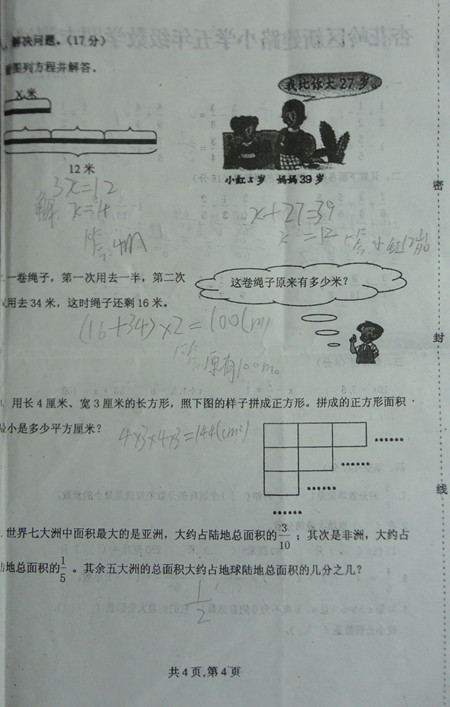 解决问题。（17分）
看图列方程并解答。
X 米
12 米
我比你大 27 岁。
小红 x 岁 妈妈 39 岁
3x=12
解 x=4
答:4m
x+27=39
x =12
答:小红12岁
一卷绳子，第一次用去一半，第二次
又用去 34 米，这时绳子还剩 16 米。
这卷绳子原来有多少米？
(16+34)×2=100(m)
答:原有100m。
用长 4 厘米、宽 3 厘米的长方形，照下图的样子拼成正方形。拼成的正方形面积
最小是多少平方厘米？
4×3×4×3=144(cm²)
……
……
……
世界七大洲中面积最大的是亚洲，大约占陆地总面积的3/10；其次是非洲，大约占
陆地总面积的1/5。其余五大洲的总面积大约占地球陆地总面积的几分之几？
1/2
共 4 页,第 4 页
密
封
线